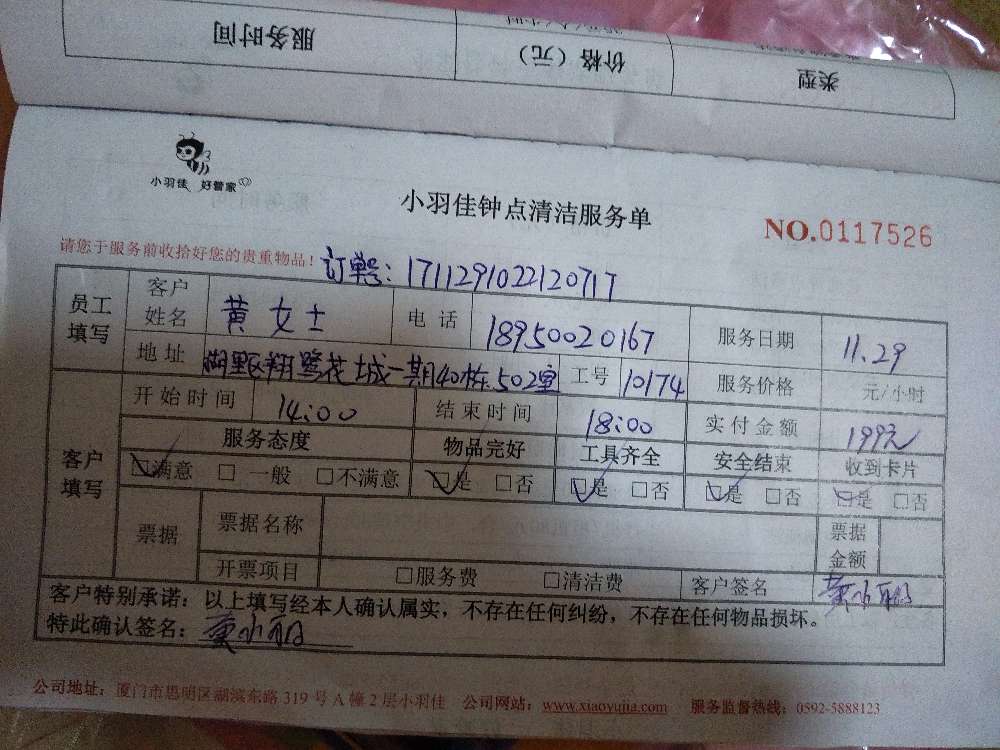 服务时间 价格（元） 类型
小羽佳 好管家
小羽佳钟点清洁服务单
NO.0117526
请您于服务前收拾好您的贵重物品！ 订单号：1711291022120717
员工填写 客户姓名 黄女士 电话 18950020167 服务日期 11.29
地址 湖里区翔鹭花城一期40栋502室 工号 10174 服务价格 元/小时
客户填写 开始时间 14:00 结束时间 18:00 实付金额 199元
服务态度 物品完好 工具齐全 安全结束 收到卡片
☑满意 □一般 □不满意 ☑是 □否 ☑是 □否 ☑是 □否 ☑是 □否
票据 票据名称 票据金额
开票项目 □服务费 □清洁费 客户签名
客户特别承诺：以上填写经本人确认属实，不存在任何纠纷，不存在任何物品损坏。
特此确认签名：
公司地址：厦门市思明区湖滨东路319号A幢2层小羽佳 公司网站：www.xiaoyujia.com 服务监督热线：0592-5888123